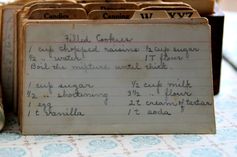 Cookies
Candies
Canning
W
XYZ
Filled Cookies
1 cup chopped raisins ½ cup sugar
½ " water 1 T flour
Boil the mixture until thick.
1 cup sugar ½ cup milk
½ " shortening 3½ " flour
1 egg 2 t cream of tartar
1 t vanilla 1 t soda